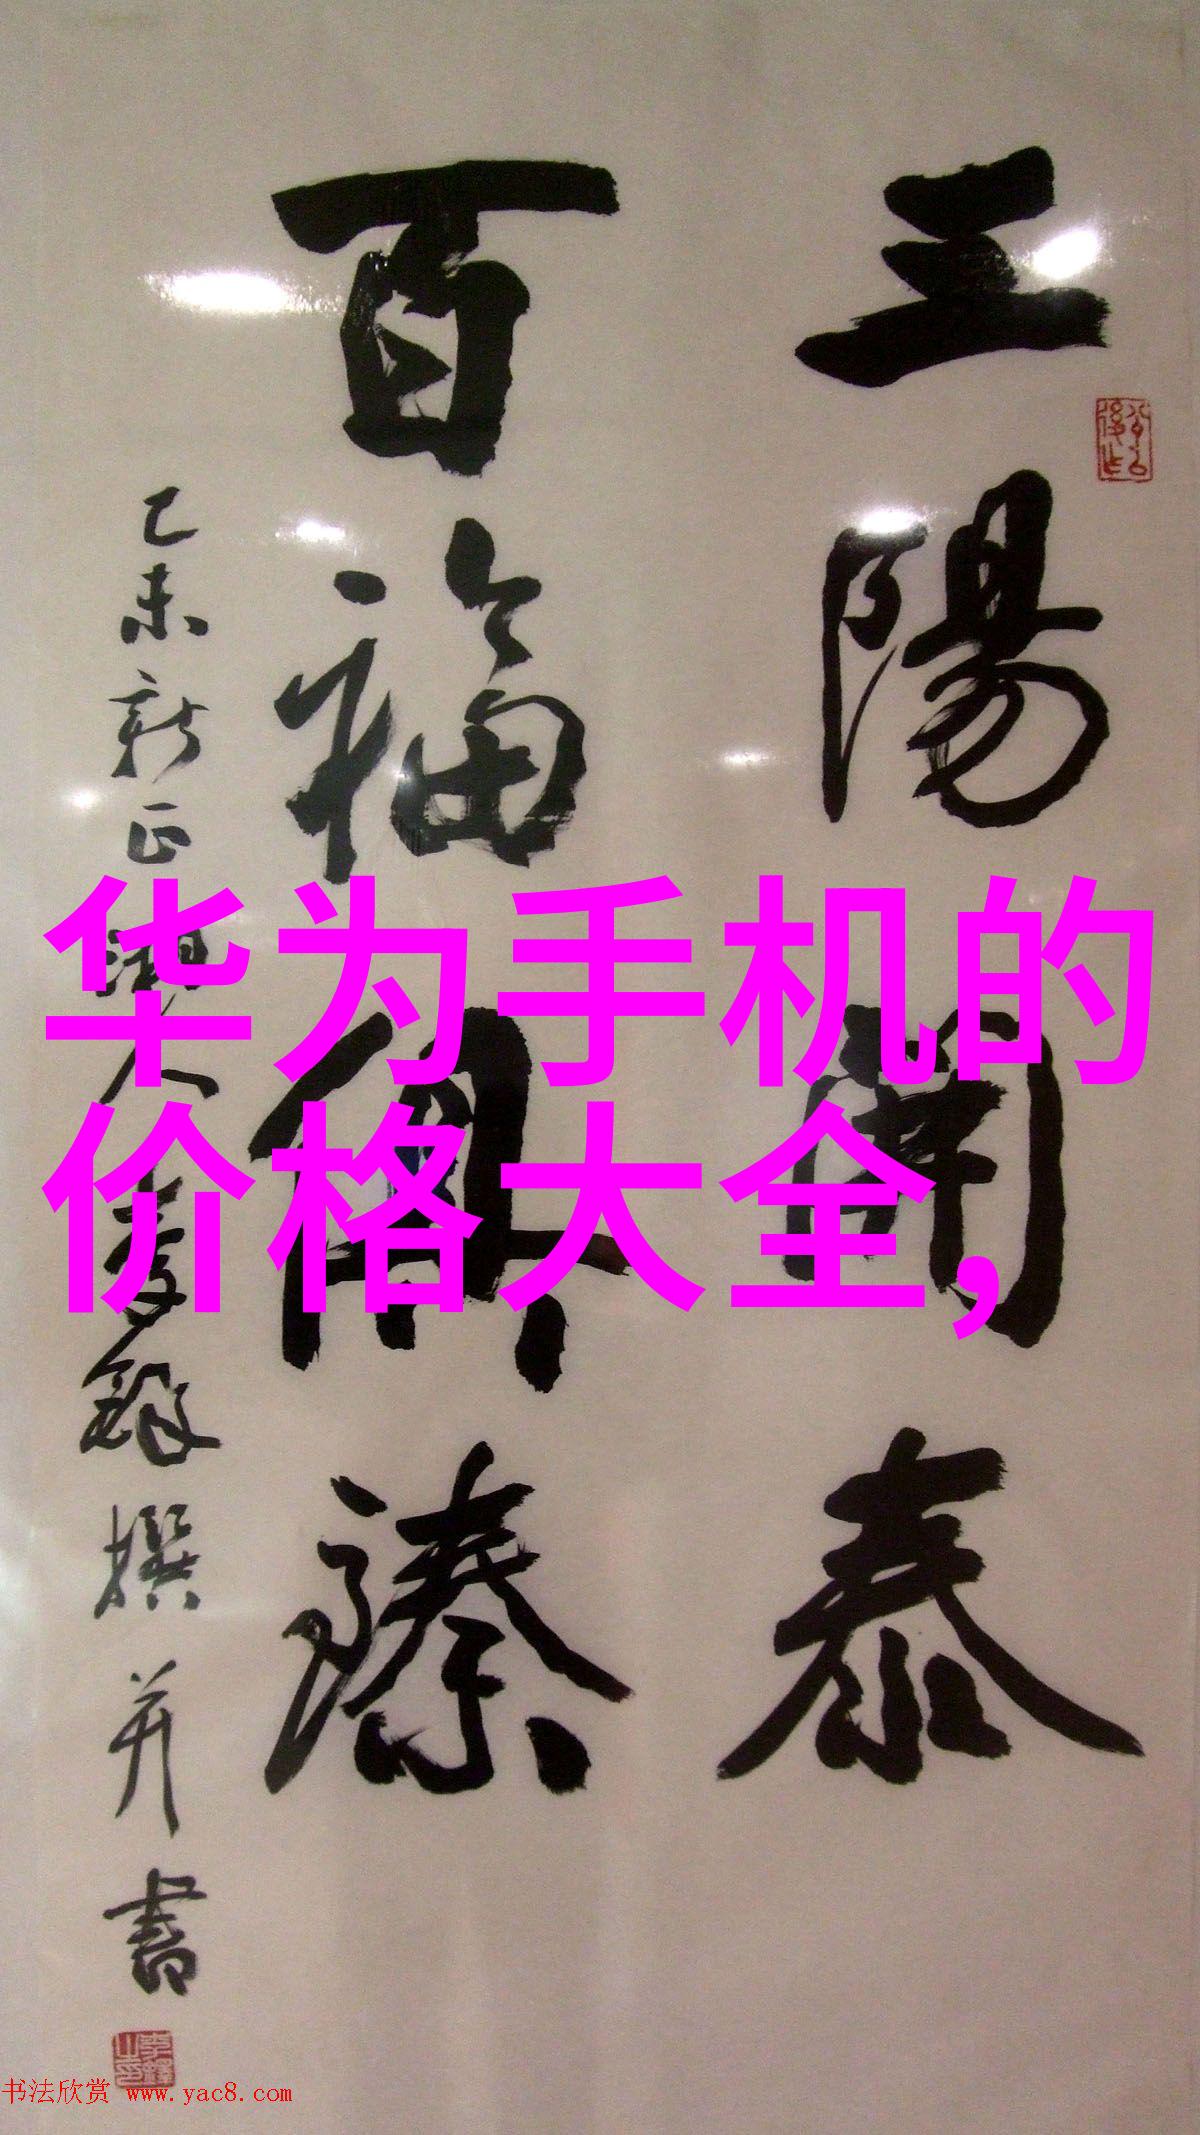 三陽開泰
百福俱臻
乙未新正
撰并書
华为手机的
价格大全,
书法欣赏 www.yac8.com